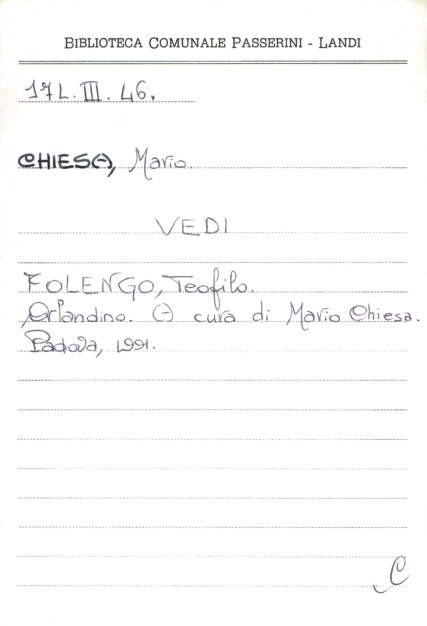 BIBLIOTECA COMUNALE PASSERINI - LANDI
17L.III.46.
CHIESA, Mario.
VEDI
FOLENGO, Teofilo.
Orlandino. A cura di Mario Chiesa.
Padova, 1991.
C